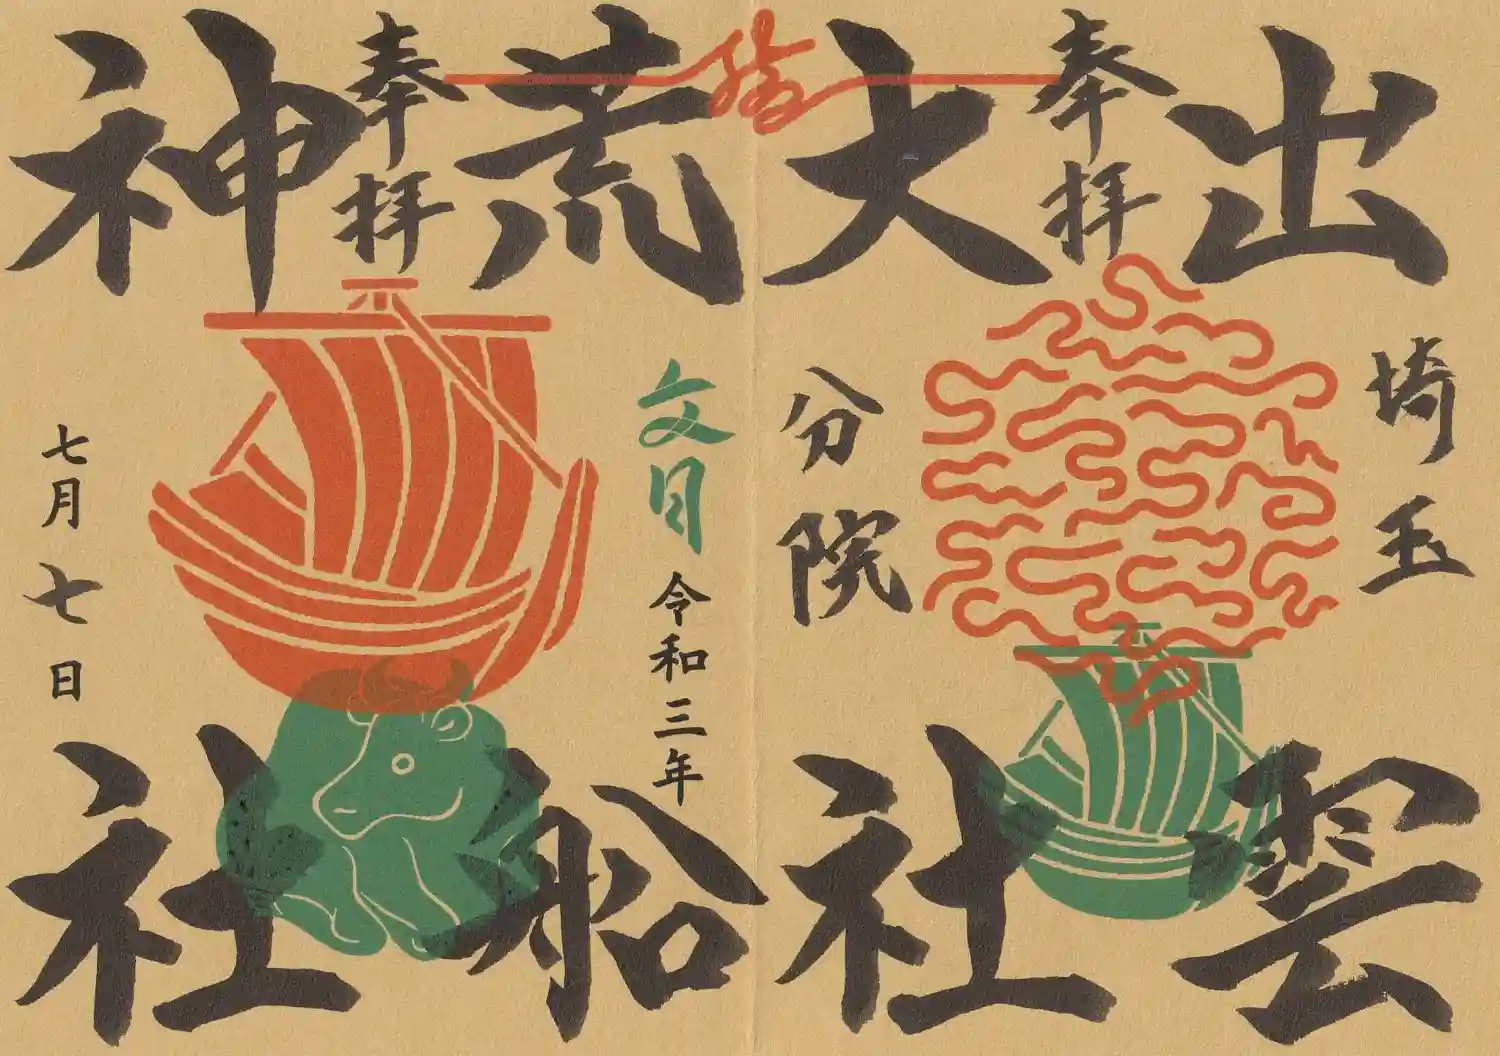 出雲
埼玉
奉拝
大社
分院
荒船
奉拝
神社
文月
令和三年
七月七日